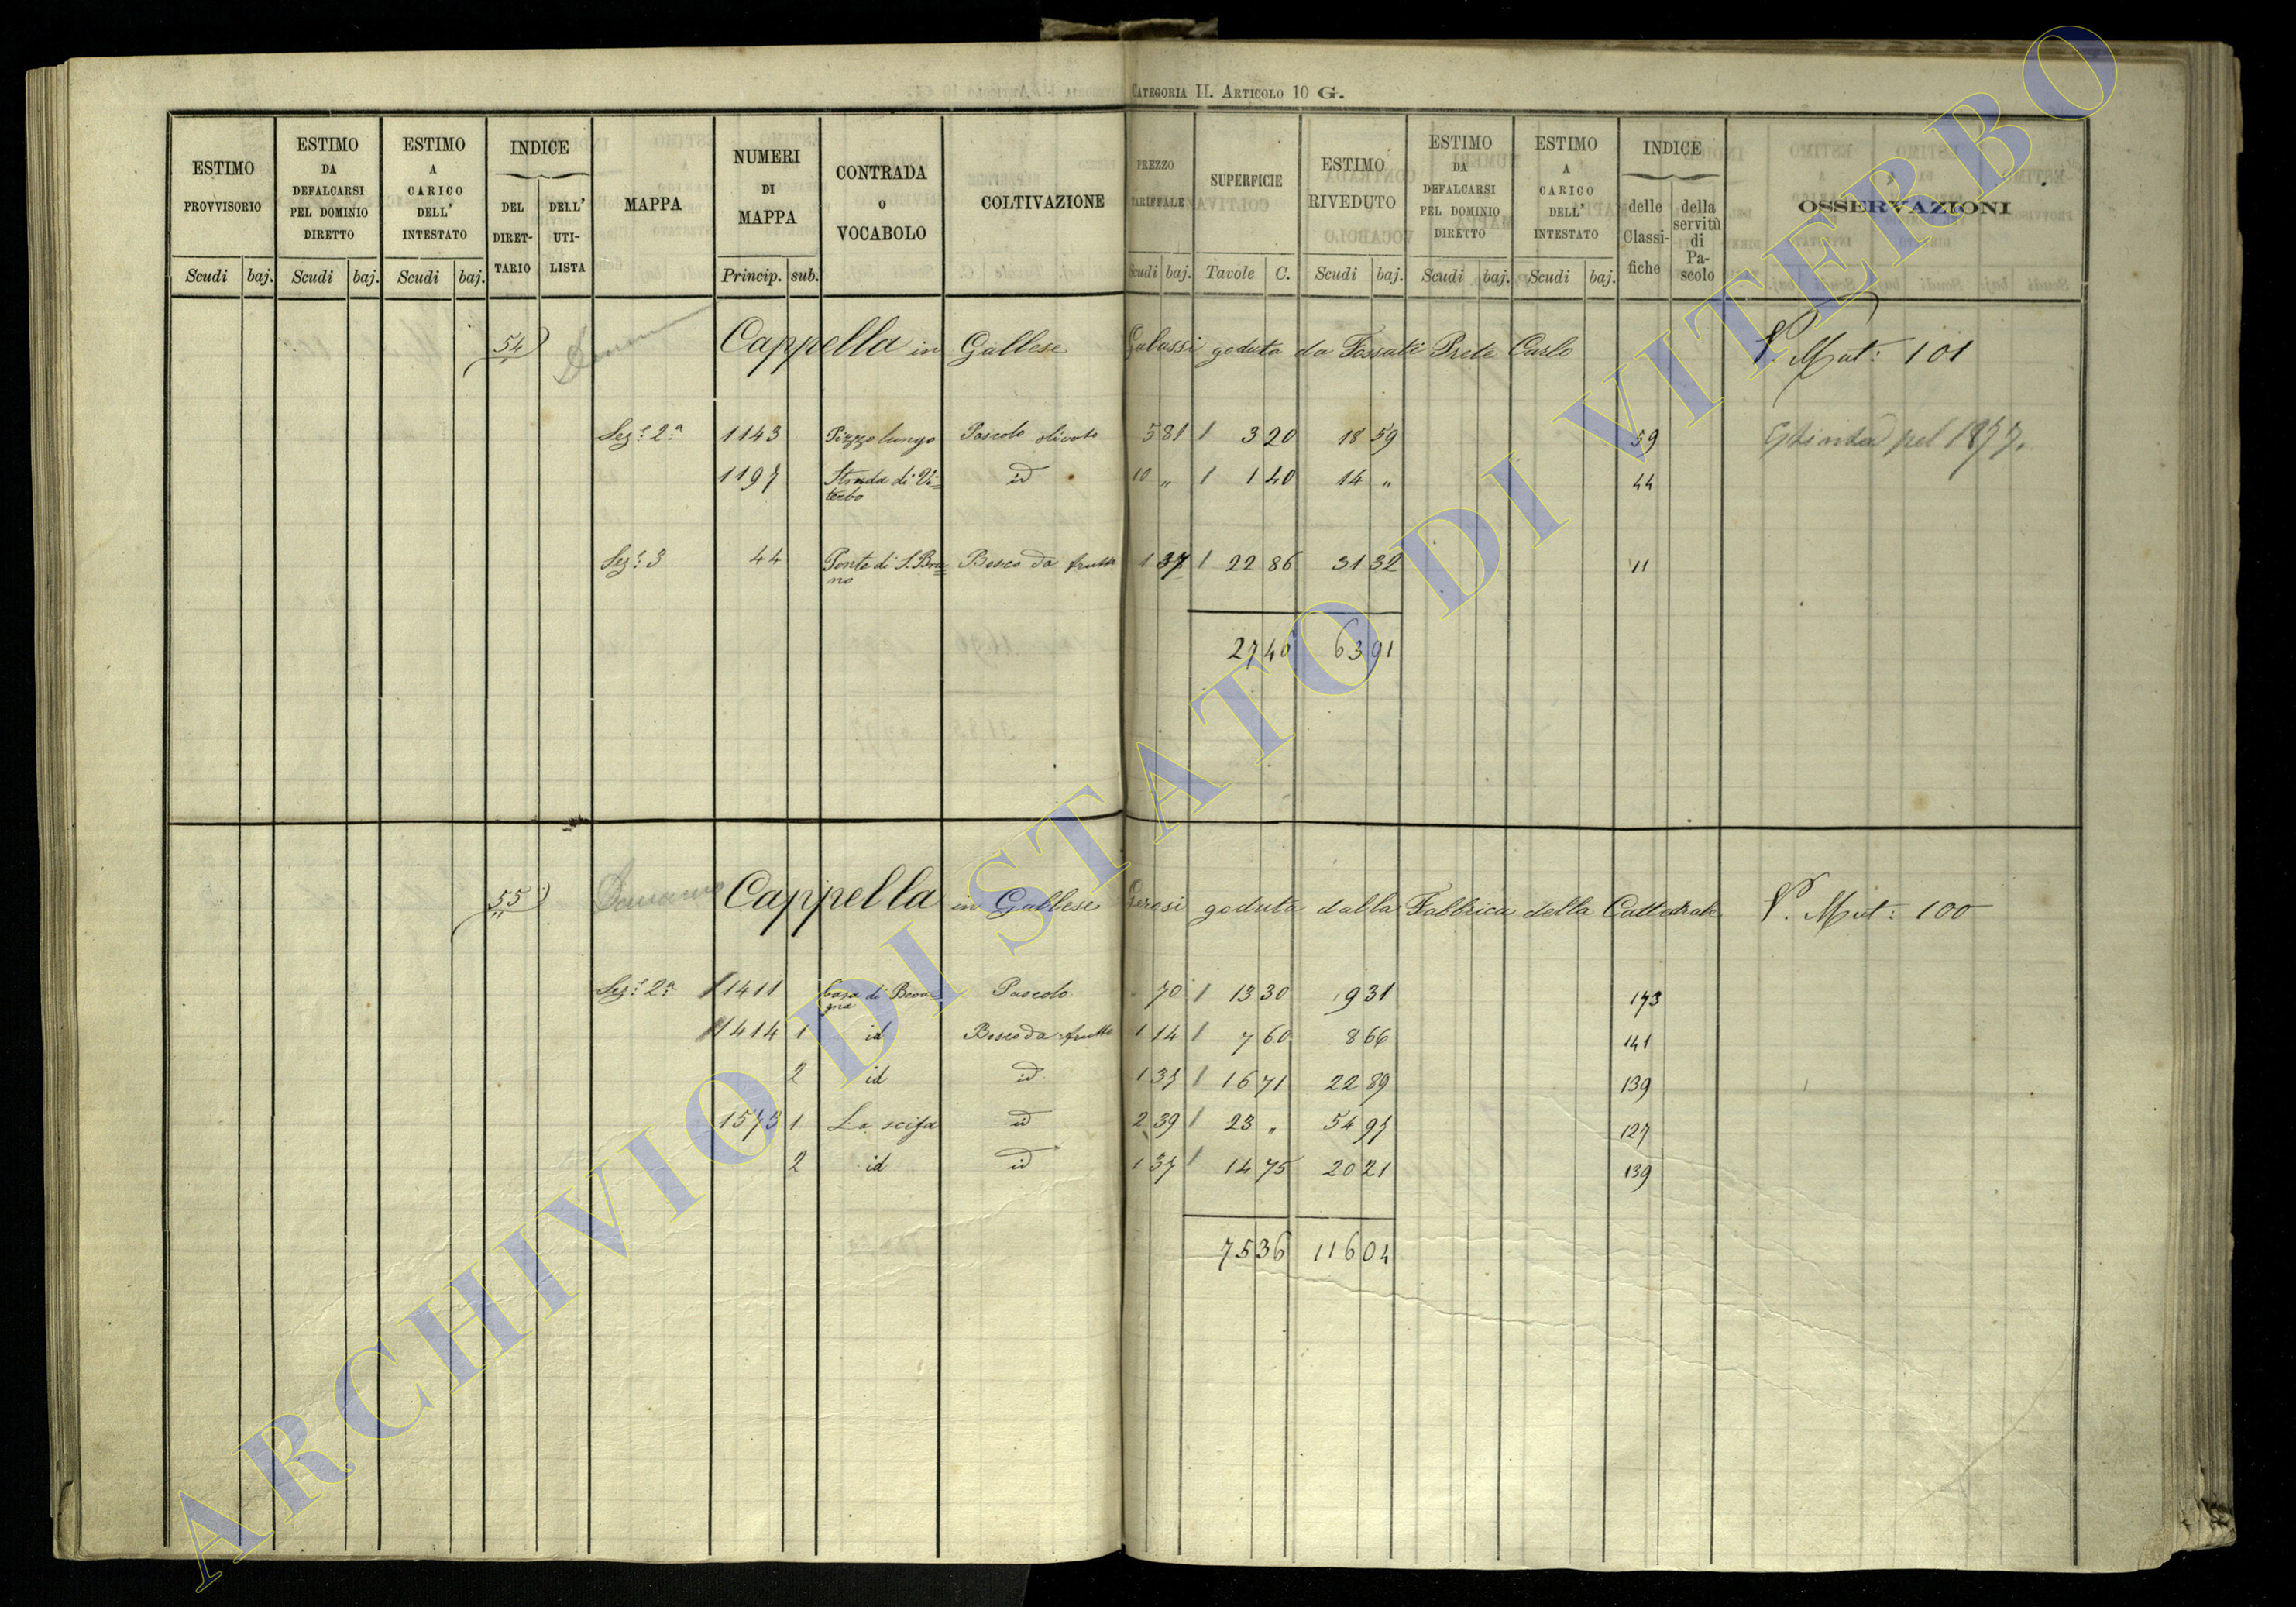 CATEGORIA II. ARTICOLO 10 G.
ESTIMO PROVVISORIO Scudi baj.
ESTIMO DA DEFALCARSI PEL DOMINIO DIRETTO Scudi baj.
ESTIMO A CARICO DELL' INTESTATO Scudi baj.
INDICE DEL DIRET- TARIO DELL' UTI- LISTA
MAPPA
NUMERI DI MAPPA Princip. sub.
CONTRADA O VOCABOLO
COLTIVAZIONE
PREZZO TARIFFALE Scudi baj.
SUPERFICIE Tavole C.
ESTIMO RIVEDUTO Scudi baj.
ESTIMO DA DEFALCARSI PEL DOMINIO DIRETTO Scudi baj.
ESTIMO A CARICO DELL' INTESTATO Scudi baj.
INDICE delle Classi- fiche della servitù di Pa- scolo
OSSERVAZIONI
54 Cappella in Gallese Galassi goduta da Fossati Prete Carlo V. Mut: 101
Sez: 2a 1143 Pizzo lungo Pascolo olivato 5 81 / 3 20 18 59 59 Estinta pel 1877.
1197 Strada di Vi= id 10 „ / 1 40 14 „ 44
terbo
Sez: 3 44 Ponte di S. Bru= Bosco da frutto 1 37 / 22 86 31 32 11
no
27 46 63 91
55 Demanio Cappella in Gallese Gerosi goduta dalla Fabbrica della Cattedrale V. Mut: 100
Sez: 2a 1411 Casa di Beva= Pascolo 70 / 13 30 9 31 173
gna
1414 1 id Bosco da frutto 1 14 / 7 60 8 66 141
2 id id 1 37 / 16 71 22 89 139
1573 1 La scifa id 2 39 / 23 „ 54 97 127
2 id id 1 37 / 14 75 20 21 139
75 36 116 04
ARCHIVIO DI STATO DI VITERBO